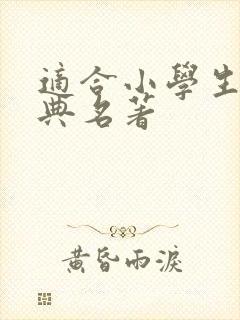 適合小學生
典名著
黃昏雨淚